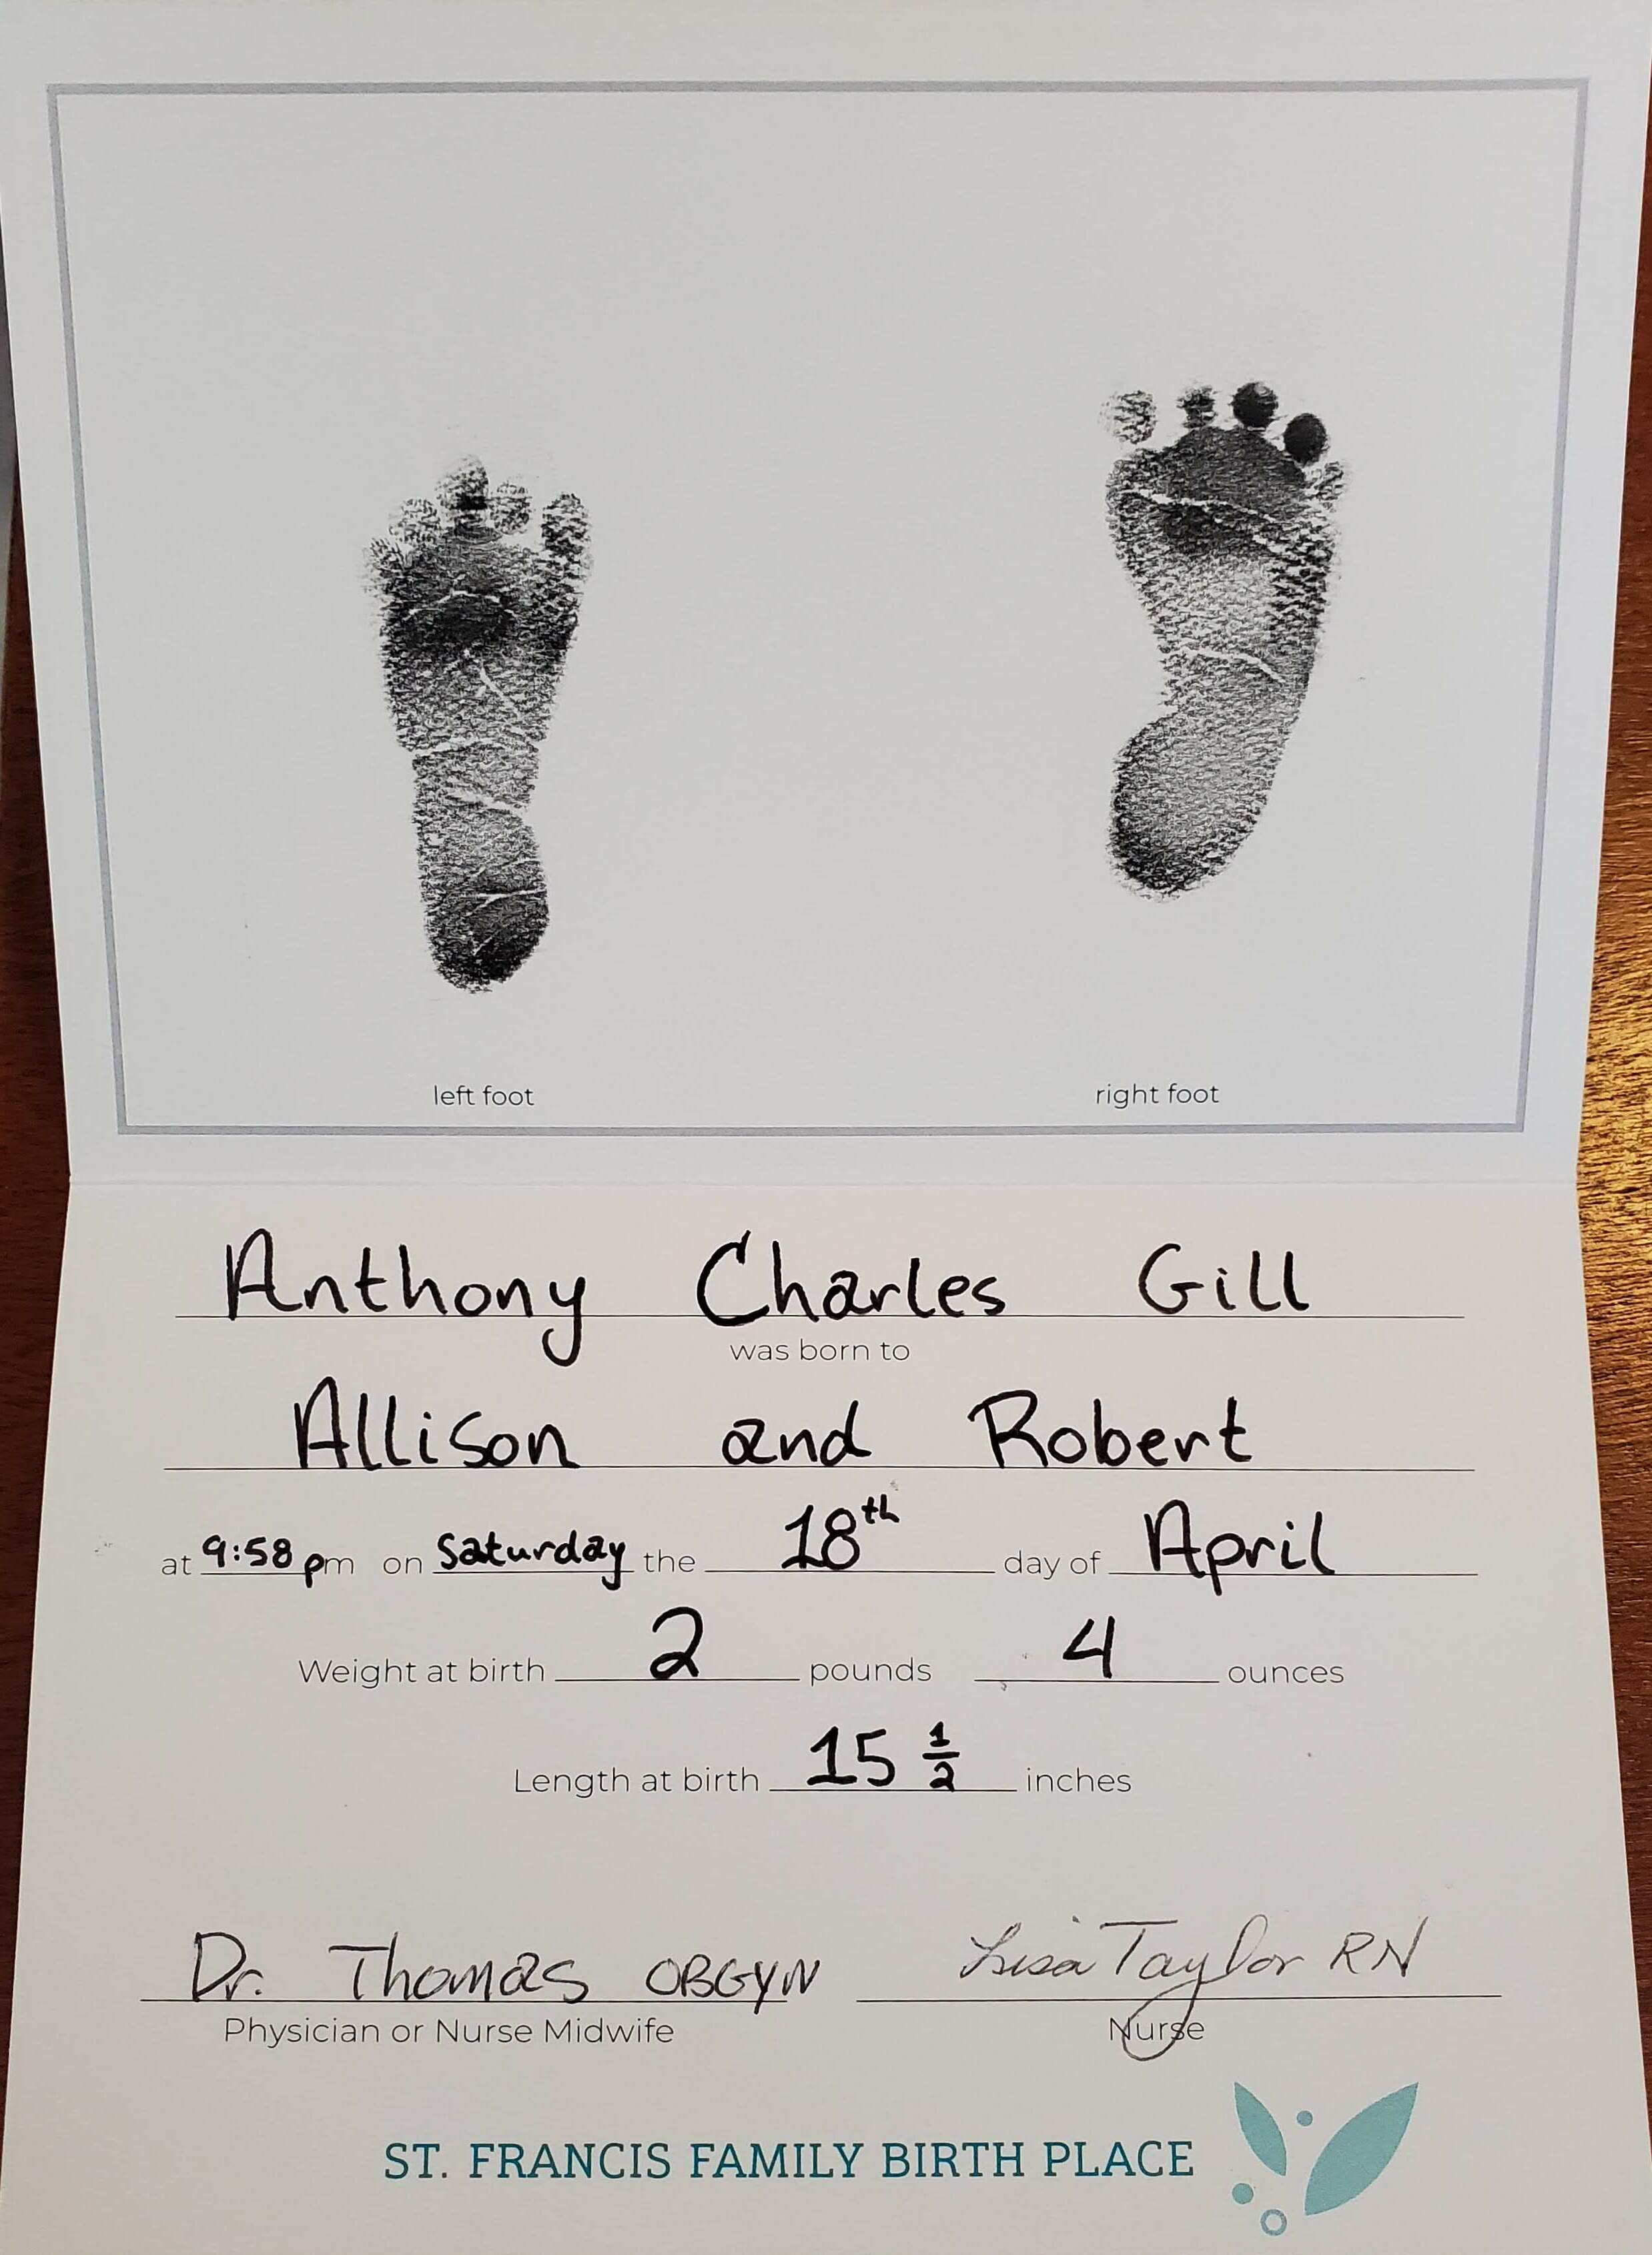 left foot right foot
Anthony Charles Gill
was born to
Allison and Robert
at 9:58 pm on Saturday the 18th day of April
Weight at birth 2 pounds 4 ounces
Length at birth 15 1/2 inches
Dr. Thomas OBGYN Lisa Taylor RN
Physician or Nurse Midwife Nurse
ST. FRANCIS FAMILY BIRTH PLACE